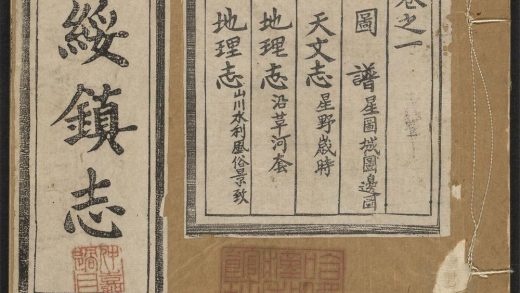 卷之一
圖譜 星圖城圖邊圖
天文志 星野歲時
地理志 沿革河套
地理志 山川水利風俗景致
綏鎮志